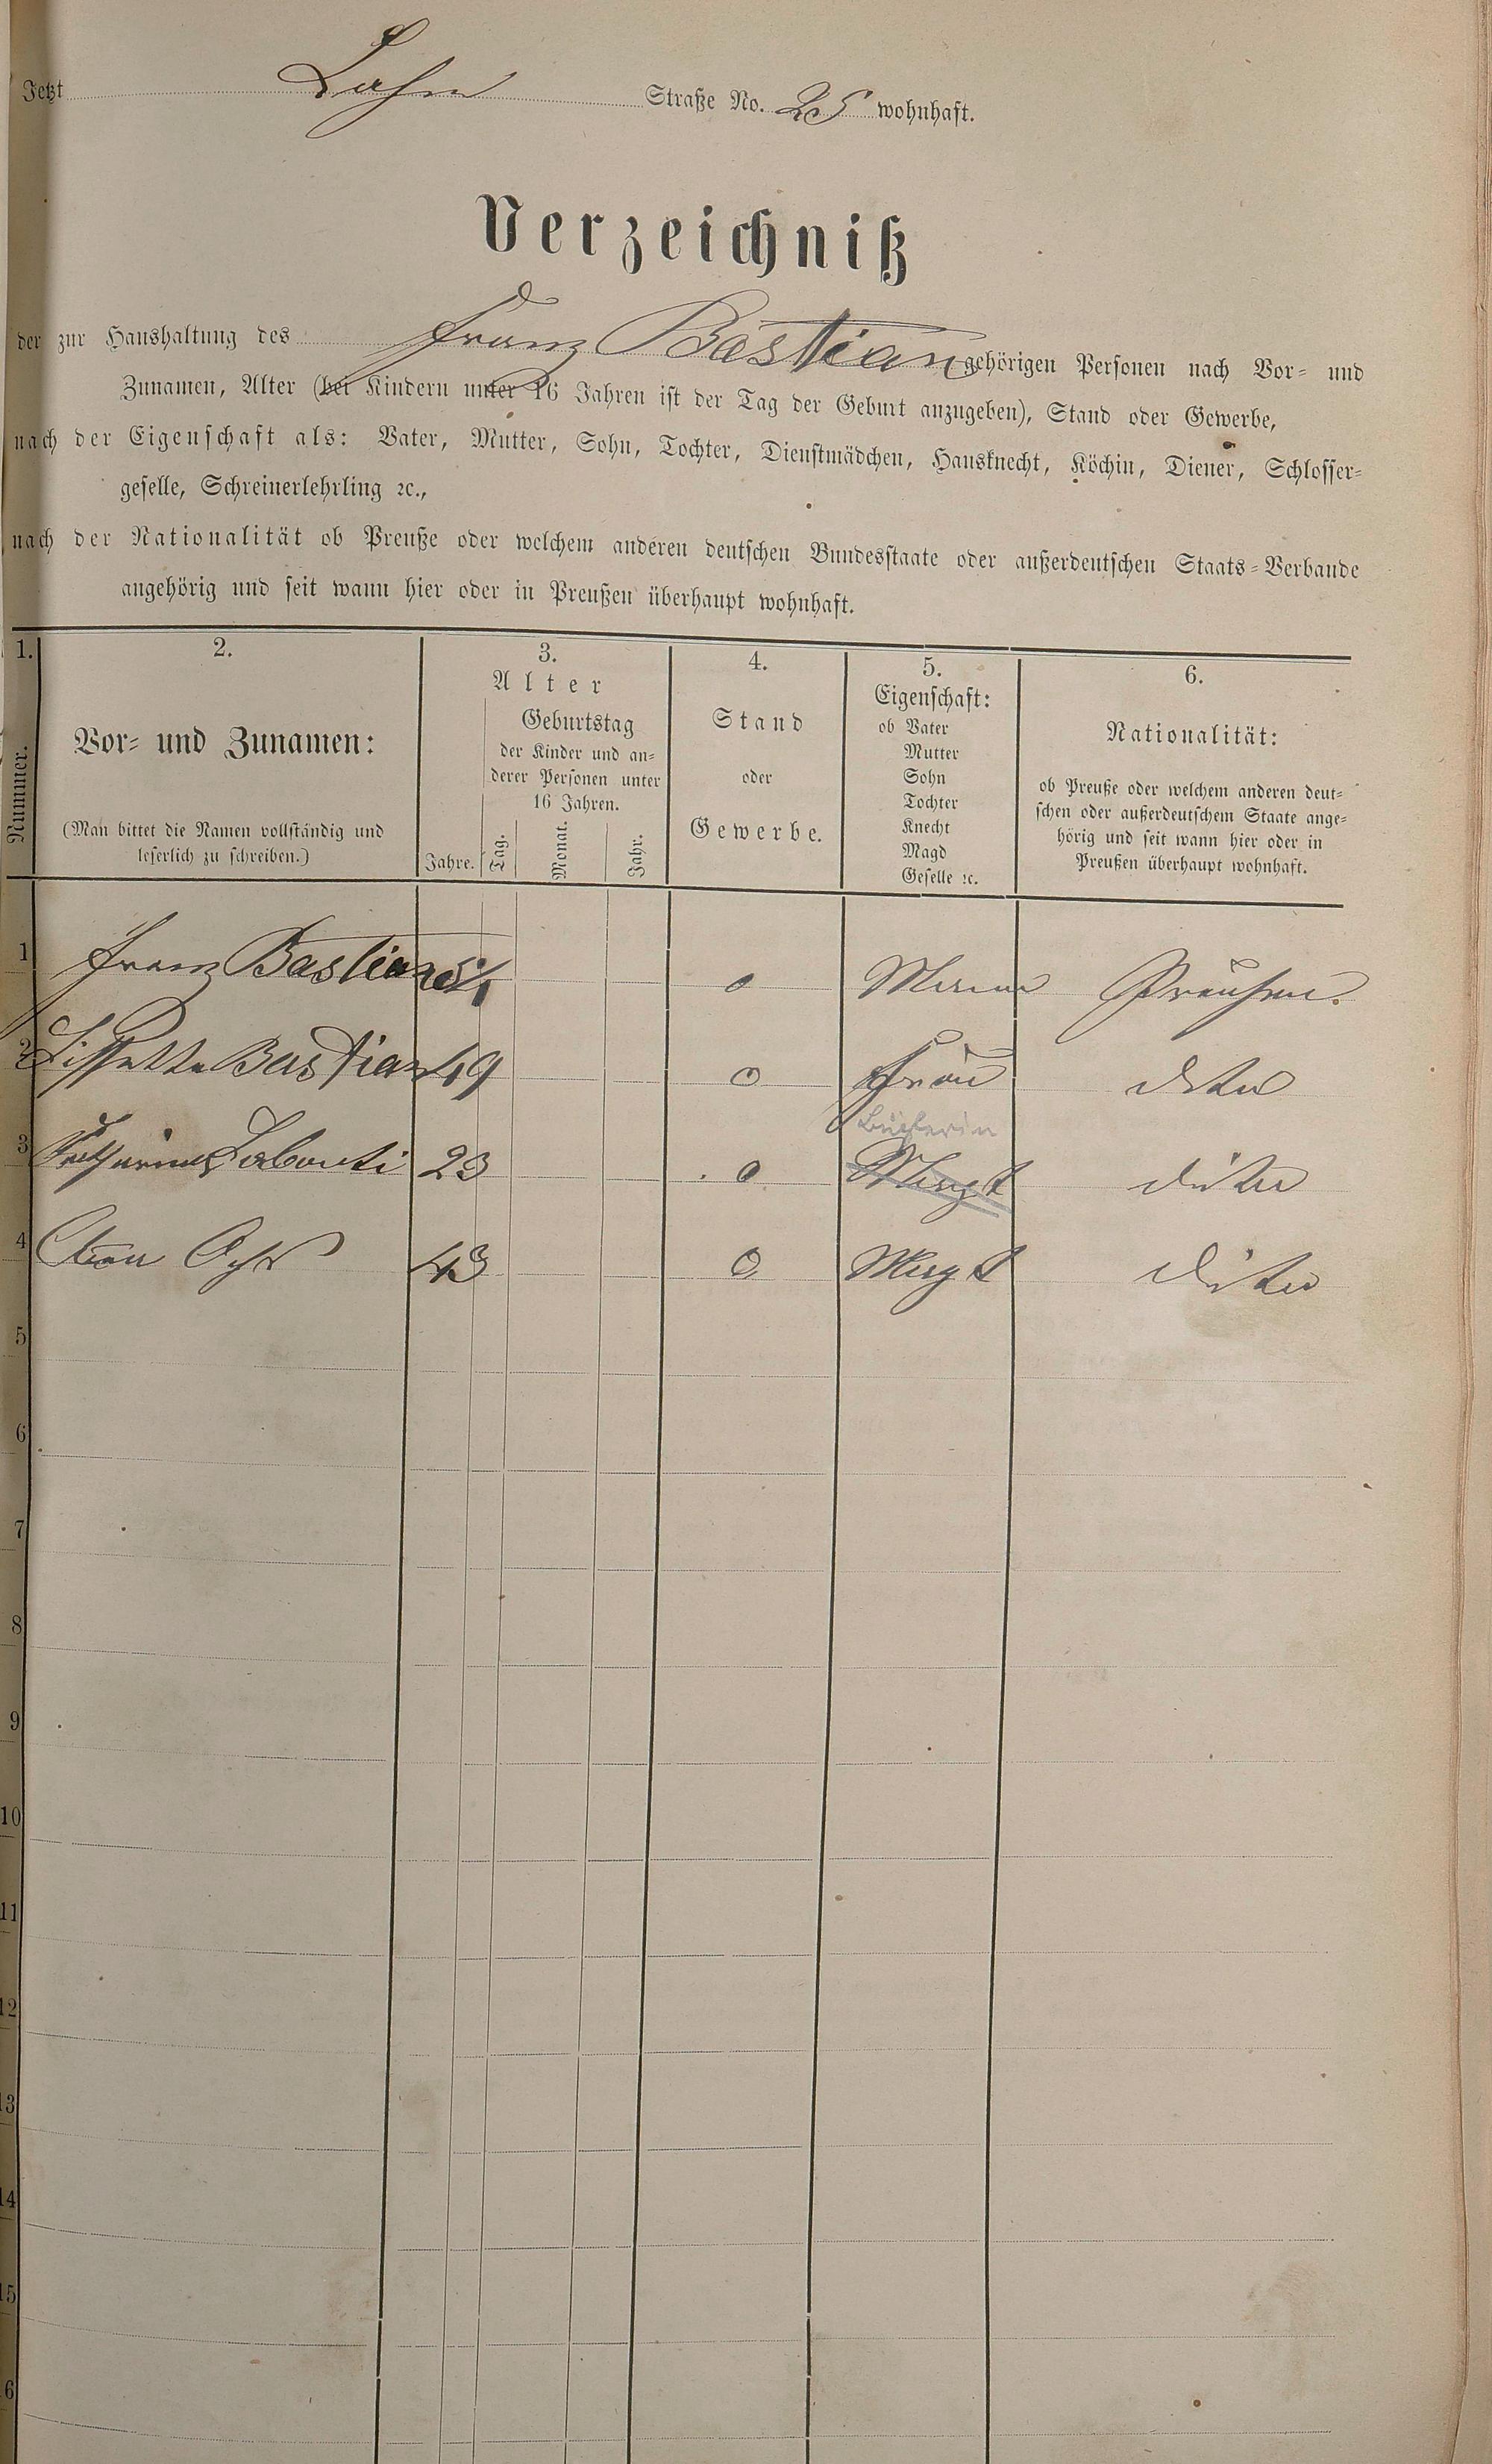 Jetzt Lahn Straße No. 25 wohnhaft.
Verzeichniß
der zur Haushaltung des Franz Bastian gehörigen Personen nach Vor- und
Zunamen, Alter (bei Kindern unter 16 Jahren ist der Tag der Geburt anzugeben), Stand oder Gewerbe,
nach der Eigenschaft als: Vater, Mutter, Sohn, Tochter, Dienstmädchen, Hausknecht, Köchin, Diener, Schlosser-
geselle, Schreinerlehrling ꝛc.,
nach der Nationalität ob Preuße oder welchem anderen deutschen Bundesstaate oder außerdeutschen Staats-Verbande
angehörig und seit wann hier oder in Preußen überhaupt wohnhaft.
1. 2. 3. 4. 5. 6.
Nummer.
Vor- und Zunamen:
(Man bittet die Namen vollständig und
leserlich zu schreiben.)
Alter
Jahre.
Geburtstag
der Kinder und an-
derer Personen unter
16 Jahren.
Tag. Monat. Jahr.
Stand
oder
Gewerbe.
Eigenschaft:
ob Vater
Mutter
Sohn
Tochter
Knecht
Magd
Geselle ꝛc.
Nationalität:
ob Preuße oder welchem anderen deut-
schen oder außerdeutschem Staate ange-
hörig und seit wann hier oder in
Preußen überhaupt wohnhaft.
1 Franz Bastian 54 o Mann Preußen.
2 Lissette Bastian 49 o Frau dito
3 Katharina Labonti 23 o Magd dito
4 43 o Magd dito
5
6
7
8
9
10
11
12
13
14
15
6